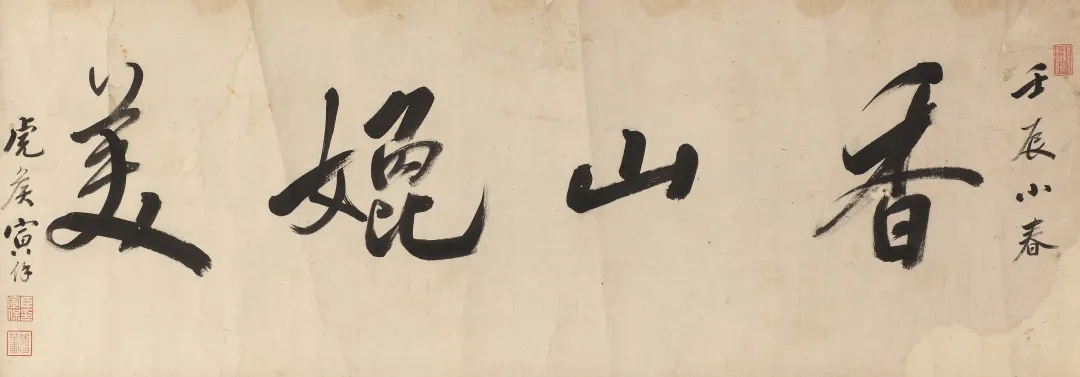 壬辰小春
香山媲美
虎侯寅保